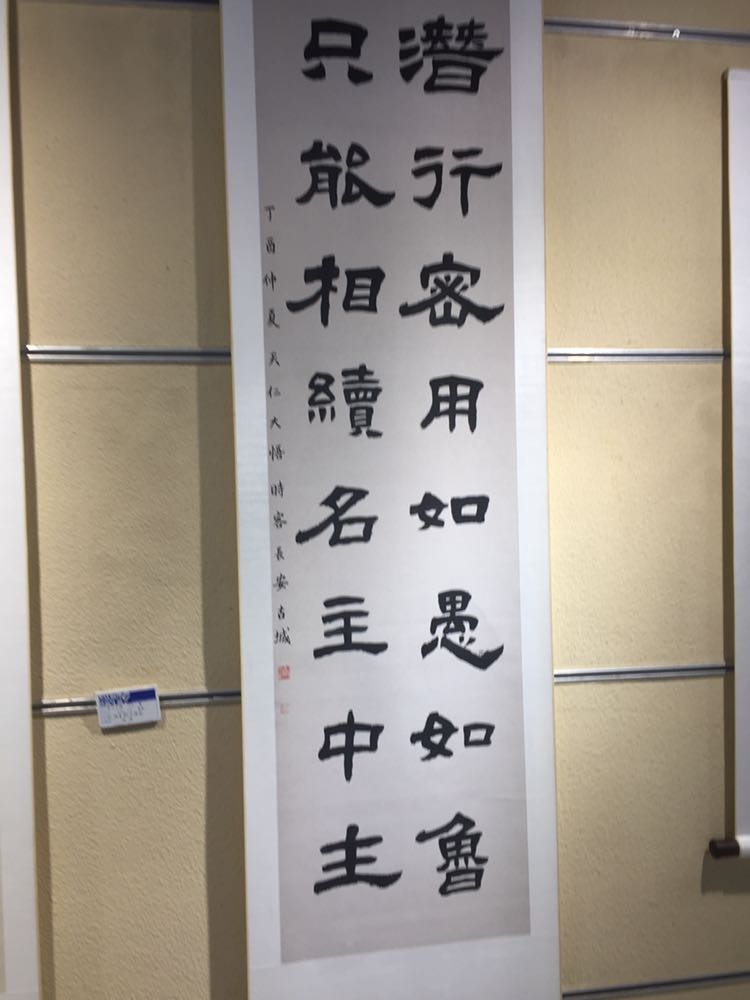 潛行密用如愚如魯
只能相續名主中主
丁酉仲夏天仁大悟時客長安古城